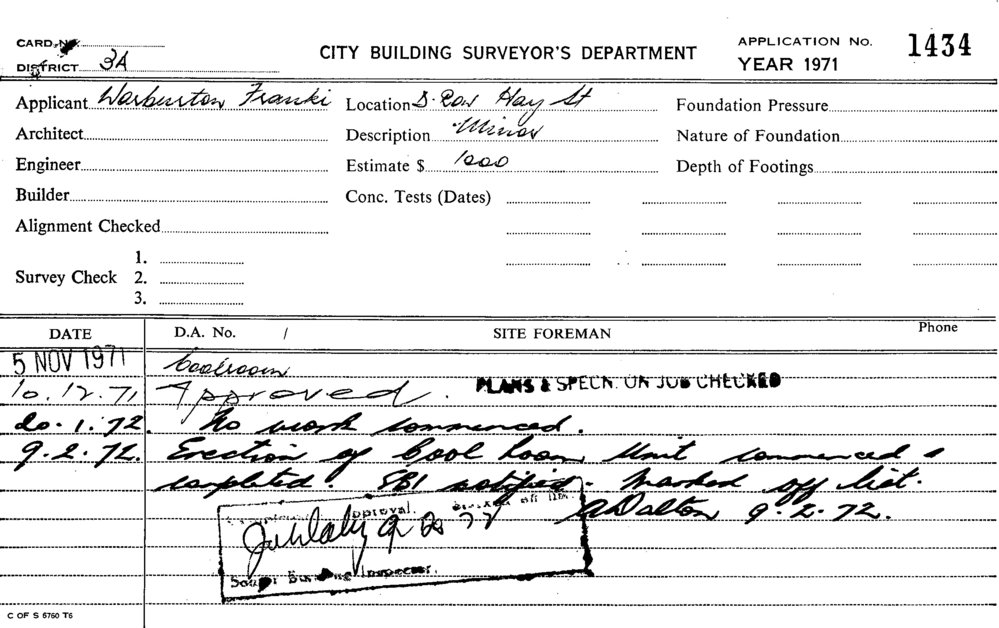 CARD No.
CITY BUILDING SURVEYOR'S DEPARTMENT
APPLICATION No. 1434
DISTRICT 3A
YEAR 1971
Applicant Warburton Franki Location Hay St Foundation Pressure
Architect Description Minor Nature of Foundation
Engineer Estimate $ 1000 Depth of Footings
Builder Conc. Tests (Dates)
Alignment Checked
1.
Survey Check 2.
3.
DATE D.A. No. / SITE FOREMAN Phone
5 NOV 1971 Coolroom
10.12.71 Approved. PLANS & SPECN. ON JOB CHECKED
20.1.72. No work commenced.
9.2.72. Erection of Cool Room Unit commenced &
completed. SBI notified. Marked off list.
approval. marked off list ADalton 9.2.72.
Senior Building Inspector.
C OF S 5760 T6